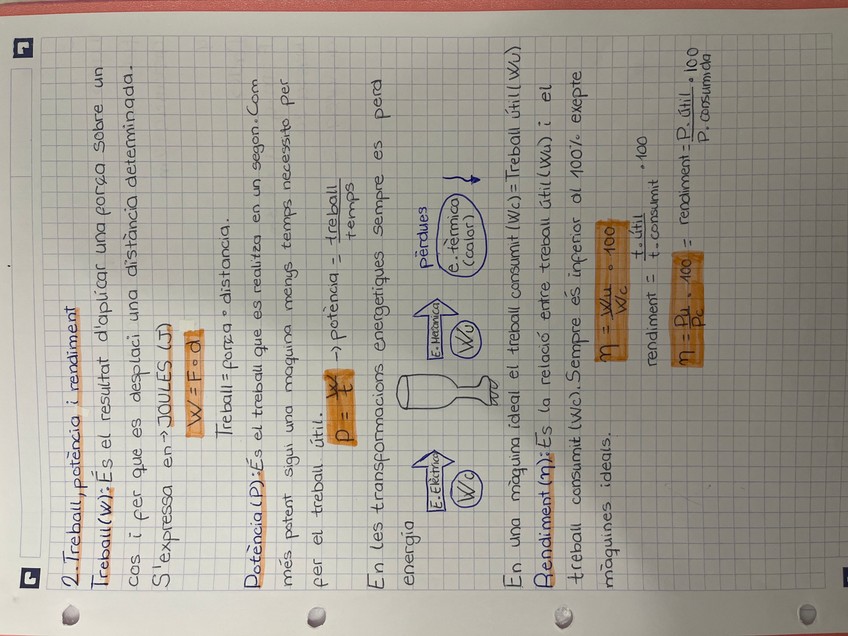 2. Treball, potència i rendiment
Treball (W): És el resultat d'aplicar una força sobre un
cos i fer que es desplaci una distància determinada.
S'expressa en → JOULES (J)
W = F · d
Treball = força · distancia.
Potència (P): És el treball que es realitza en un segon. Com
més potent sigui una maquina menys temps necessito per
fer el treball útil.
P = W/t → potència = treball/temps
En les transformacions energetiques sempre es perd
energía
pèrdues
E. Elèctrica E. Mecànica e. tèrmica
Wc Wu (calor)
En una màquina ideal el treball consumit (Wc) = Treball útil (Wu)
Rendiment (η): És la relació entre treball útil (Wu) i el
treball consumit (Wc). Sempre és inferior al 100% exepte
màquines ideals.
η = Wu/Wc · 100
rendiment = t. útil/t. consumit · 100
η = Pu/Pc · 100 = rendiment = P. útil/P. consumida · 100